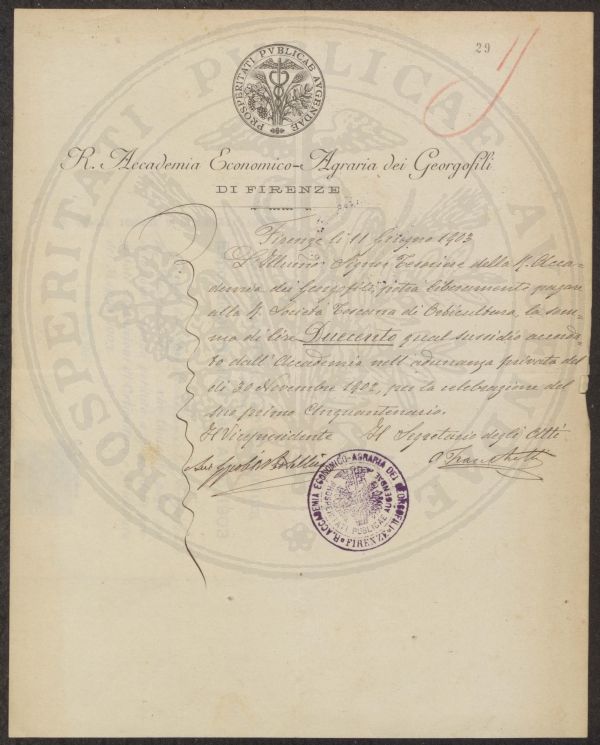 29
PROSPERITATI PVBLICAE AVGENDAE
R. Accademia Economico-Agraria dei Georgofili
DI FIRENZE
Firenze li 11 Giugno 1903
L'Illmo Signor Tesoriere della R. Acca-
demia dei Georgofili, potrà liberamente pagare
alla R. Società Toscana di Orticultura, la som-
ma di lire Duecento qual sussidio accorda-
to dall'Accademia nell'adunanza privata del
dì 30 Novembre 1902, per la celebrazione del
suo primo Cinquantenario.
Il Vicepresidente Il Segretario degli Atti
R. ACCADEMIA ECONOMICO-AGRARIA DEI GEORGOFILI
PROSPERITATI PUBLICAE AUGENDAE
FIRENZE
PROSPERITATI PUBLICAE AUGENDAE